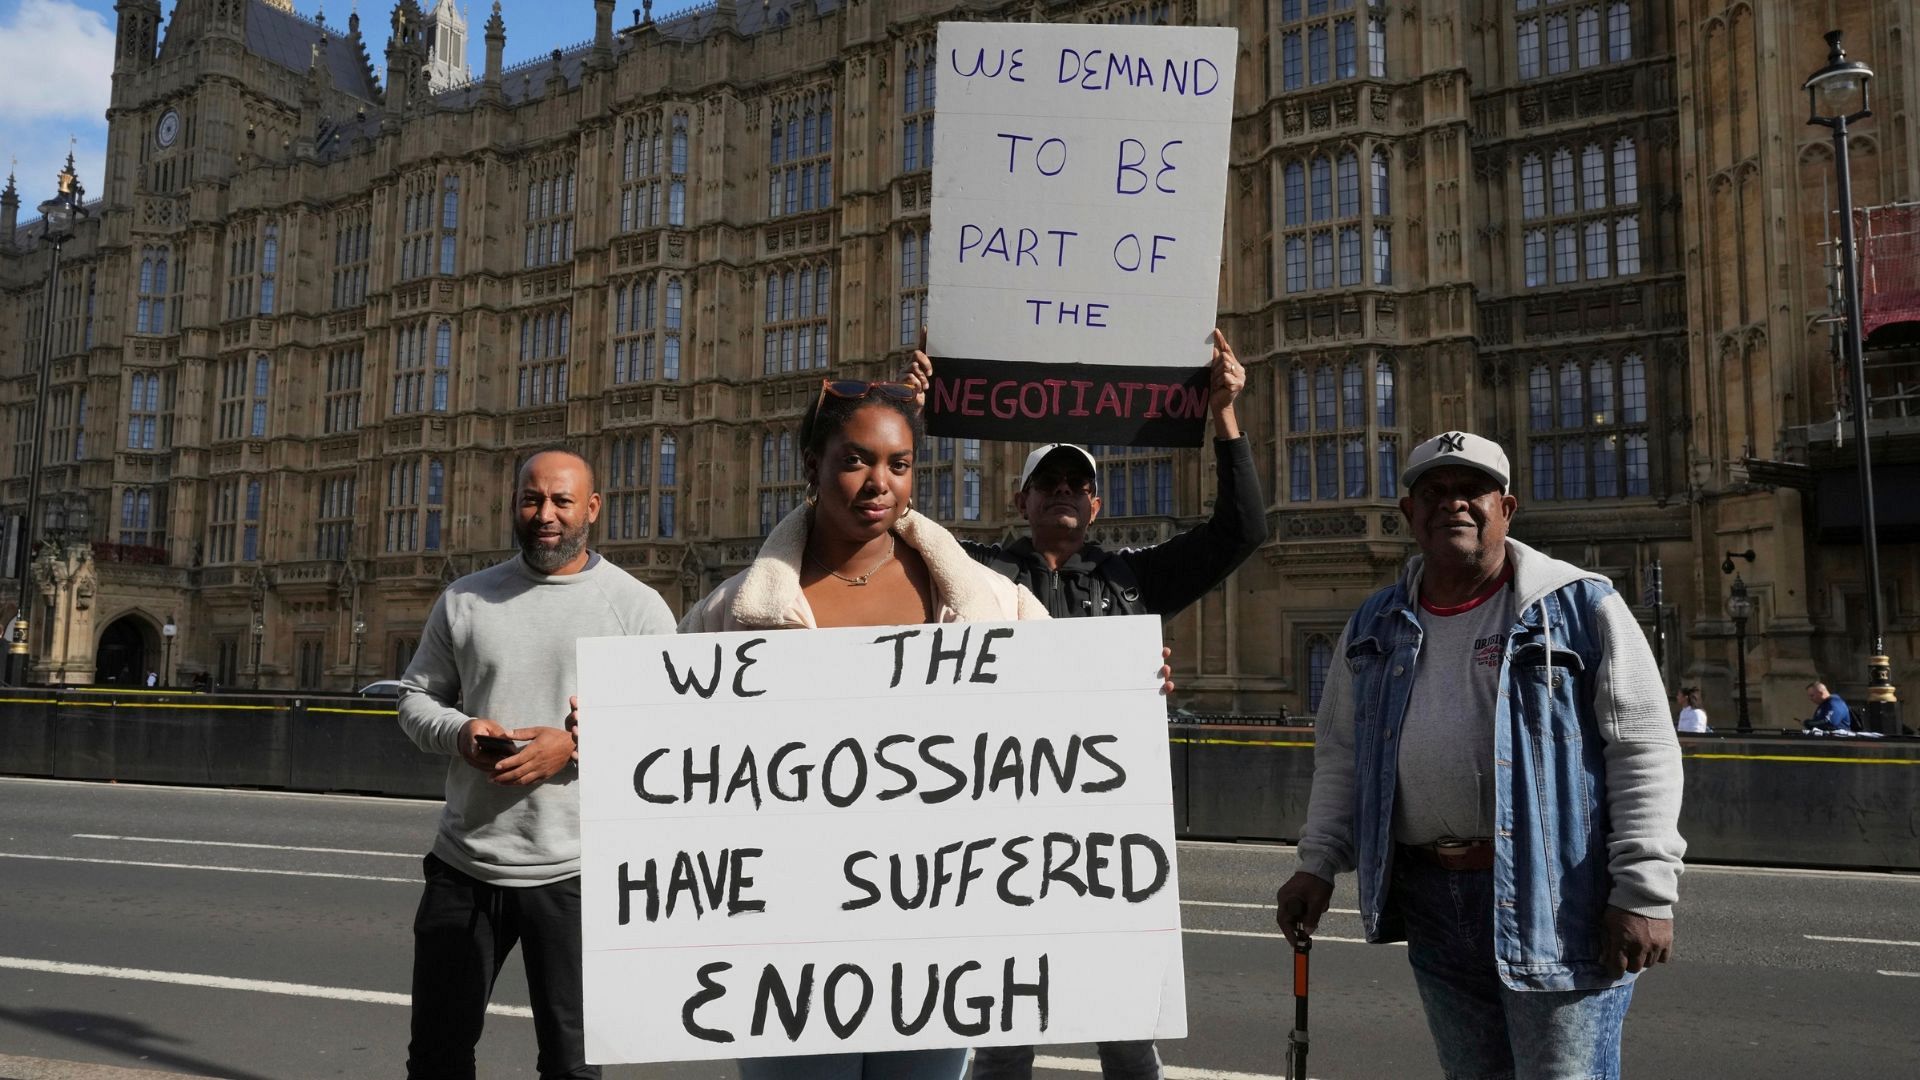 WE DEMAND
TO BE
PART OF
THE
NEGOTIATION
WE THE
CHAGOSSIANS
HAVE SUFFERED
ENOUGH
NY